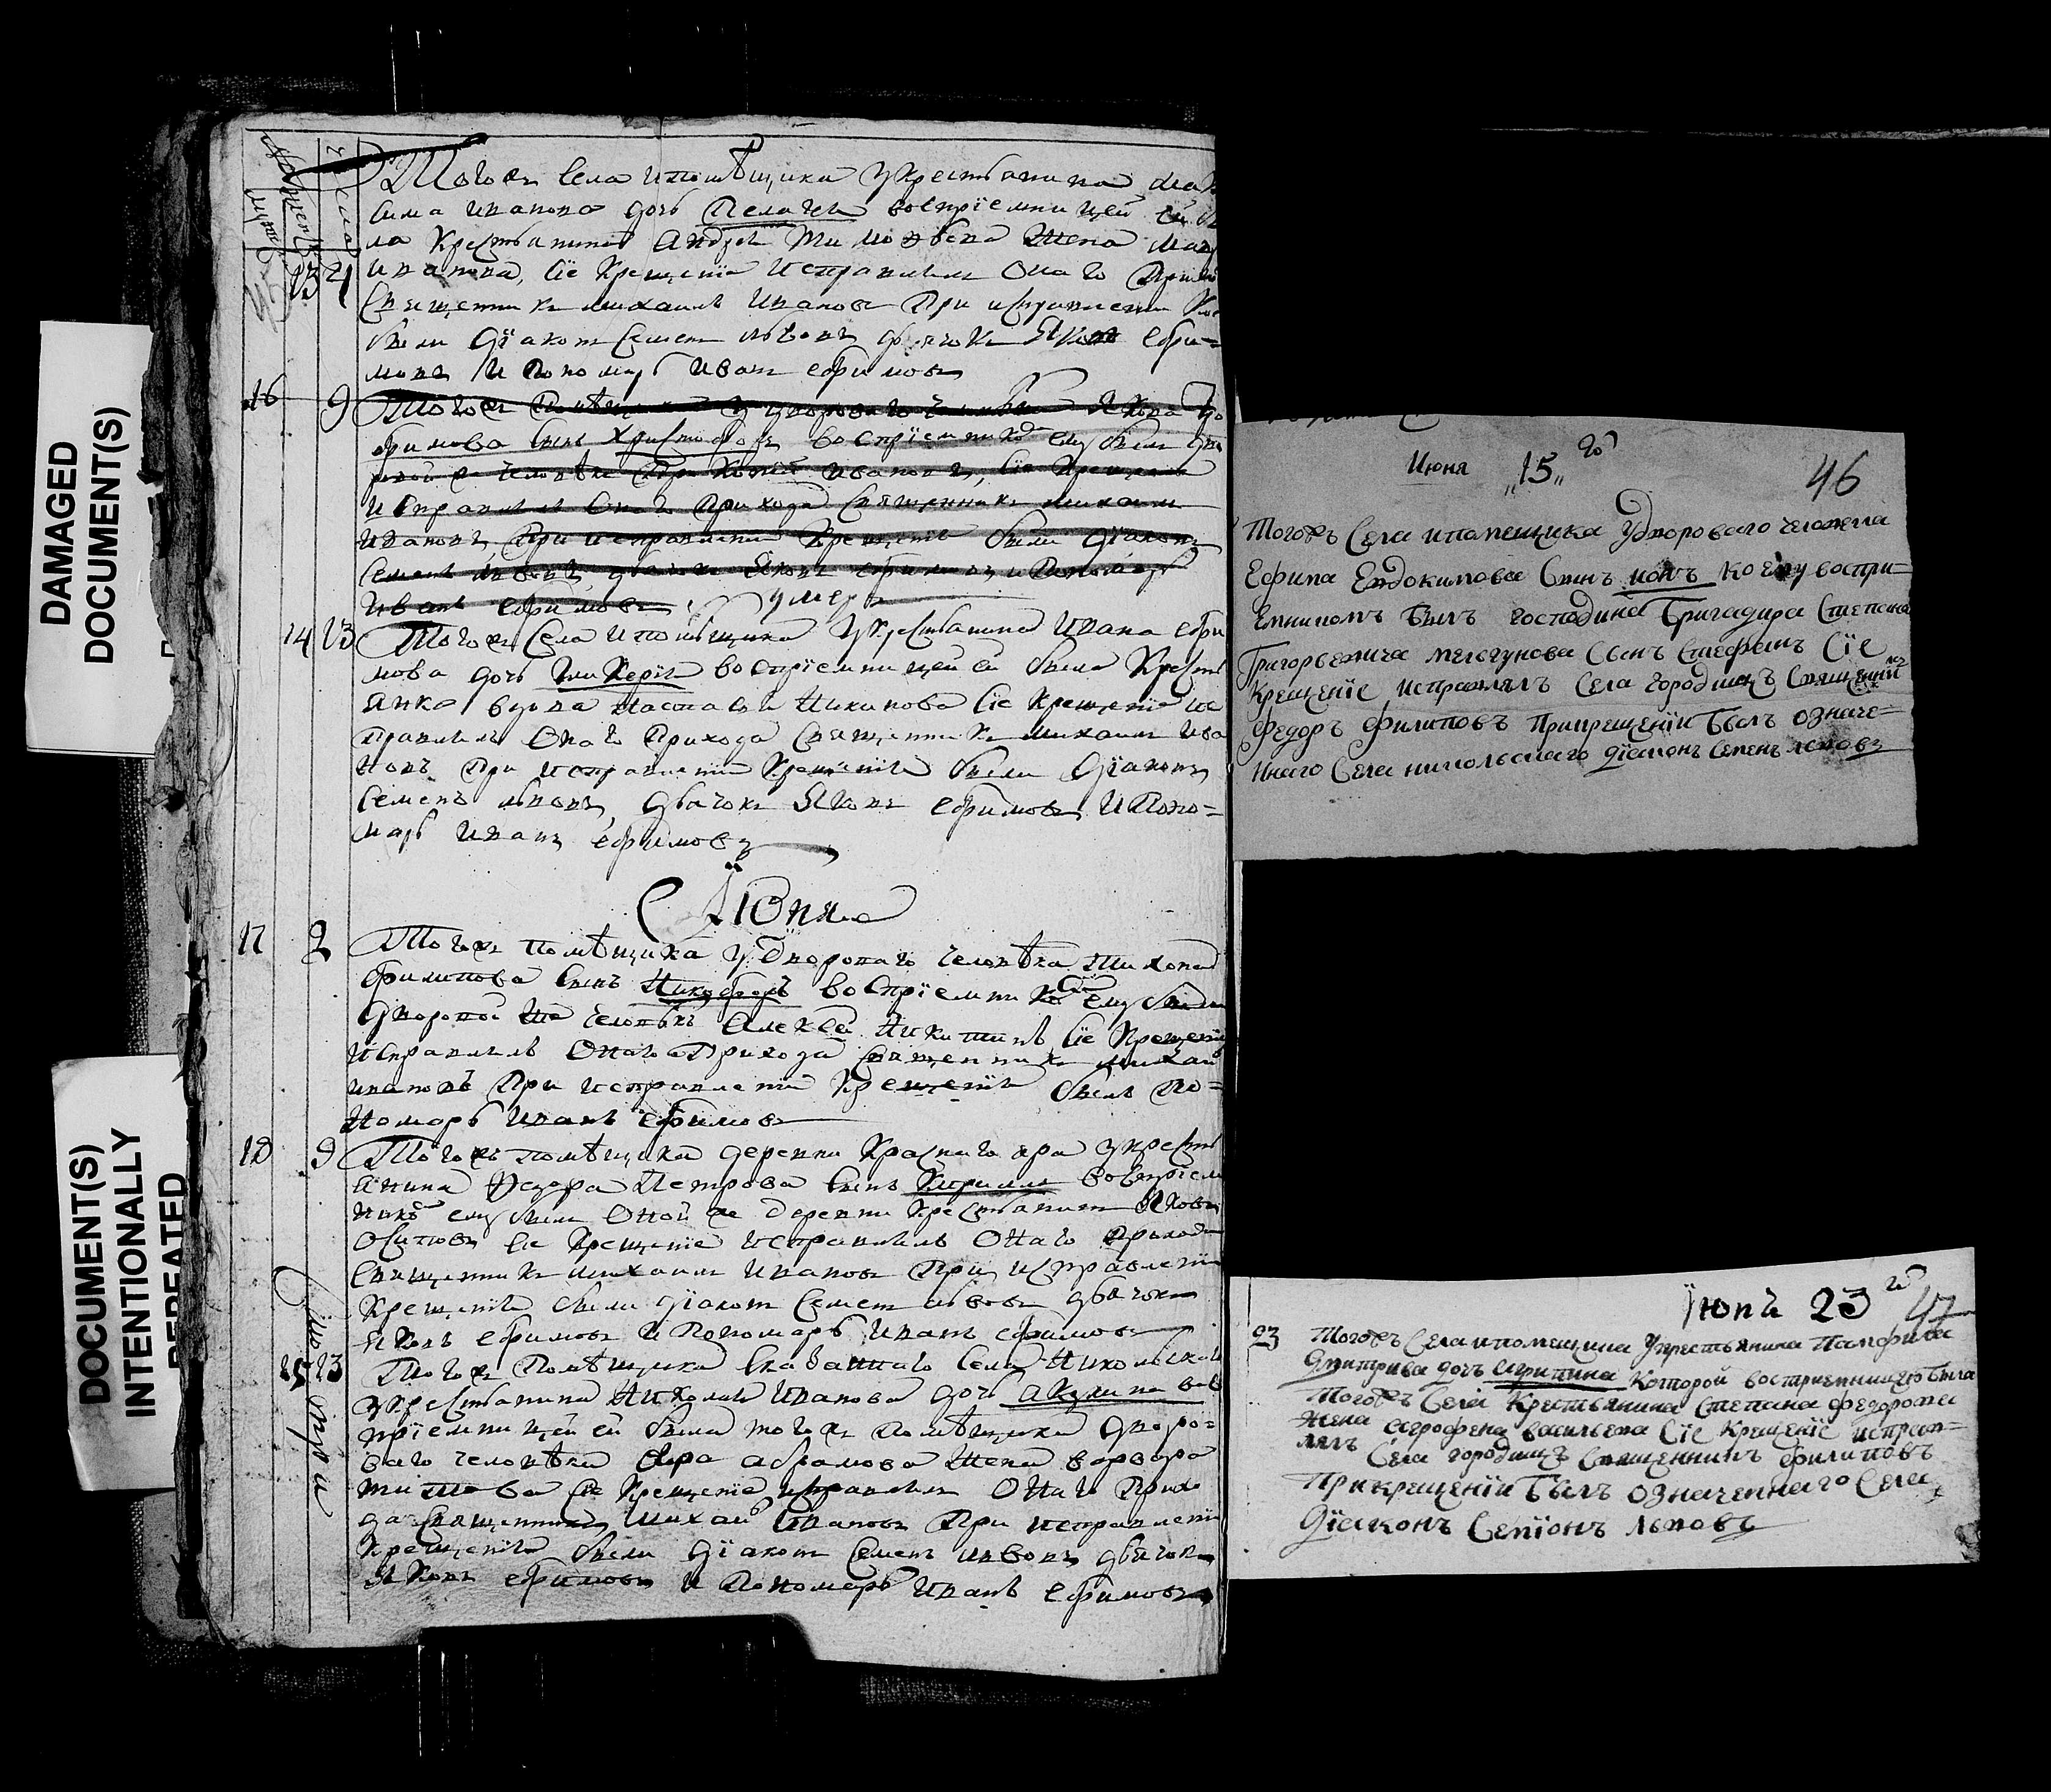 DAMAGED
DOCUMENT(S)
DOCUMENT(S)
INTENTIONALLY
REPEATED
числа
13 4
Тогожъ села и помѣщика у крестьянина
сима Иванова дочь Пелагея воспріемницей ей бы
ла крестьянина Андрея Тимоѳѣева жена
Иванова, сіе крещеніе исправлялъ онаго при
священникъ Михаилъ Ивановъ при исправленіи
были дїаконъ Семенъ Львовъ дьячокъ Яковъ Ефи=
мовъ и пономарь Иванъ Ефимовъ
16 9 Тогожъ помѣщика у двороваго человѣка Якова
Фимова сынъ Христофоръ воспріемникомъ ему былъ дво
ровой же человѣкъ Прокофей Ивановъ, сіе крещеніе
исправлялъ онаго прихода священникъ Михаилъ
Ивановъ, при исправленіи крещеніе были дїаконъ
Семенъ Львовъ, дьячокъ Яковъ Ефимовъ и пономарь
Иванъ Ефимовъ умеръ
14 13 Тогожъ села и помѣщика у крестьянина Ивана Ефи
мова дочь Гликерїя воспріемницей ей была крестья
янка вдова Настасья сіе крещеніе ис
правлялъ онаго прихода священникъ Михаилъ Ива
новъ при исправленіи крещенїя были дїаконъ
Семенъ Львовъ, дьячокъ Яковъ Ефимовъ и поно=
марь Иванъ Ефимовъ
Їюня
17 2 Тогожъ помѣщика у двороваго человѣка Тихона
Филипова сынъ Никифоръ воспріемникомъ ему былъ
дворовой же человѣкъ Алексѣй Никитинъ сіе крещенїе
исправлялъ онаго прихода священникъ Михаилъ
Ивановъ при исправленіи крещенїя былъ по=
номарь Иванъ Ефимовъ
18 9 Тогожъ помѣщика деревни Краснаго яра у кресть
янина Федора Петрова сынъ Кирилъ воспрїем
никъ ему былъ оной же деревни крестьянинъ Яковъ
Осиповъ сіе крещеніе исправлялъ онаго прихода
священникъ Михаилъ Ивановъ при исправленіи
крещенїя были дїаконъ Семенъ Львовъ дьячокъ
Яковъ Ефимовъ и пономарь Иванъ Ефимовъ
15 13 Тогожъ помѣщика сказаннаго села Никольскаго
у крестьянина Николая Иванова дочь Акулина вос
прїемницей ей была тогожъ помѣщика дворо=
ваго человѣка Абрамова жена Варвара
Титова сіе крещеніе исправлялъ онаго прихо
да священникъ Михаилъ Ивановъ при исправленіи
крещенїя были дїаконъ Семенъ Львовъ дьячокъ
Яковъ Ефимовъ и пономарь Иванъ Ефимовъ
Июня „15„ го 46
Тогожъ села и помещика у двороваго человека
Ефима Евдокимова сынъ Ионъ коему воспри-
емникомъ былъ господина Бригадира Степана
Григорьевича Мельгунова сынъ Стефанъ сїе
крещенїе исправлялъ села Городищъ священникъ
Федоръ Филиповъ при крещенїи былъ означе-
ннаго села Никольскаго дїаконъ Семенъ Львовъ
Їюня 23 го 47
23 Тогожъ села и помещика у крестьянина Памфила
Дмитрива дочь Агрипина которой восприемницею была
Тогожъ села крестьянина Степана Федорова
жена Агрофена Васильева сїе крещенїе исправ-
лялъ села Городищъ священникъ Филиповъ
при крещенїи былъ означеннаго села
дїаконъ Семїонъ Львовъ